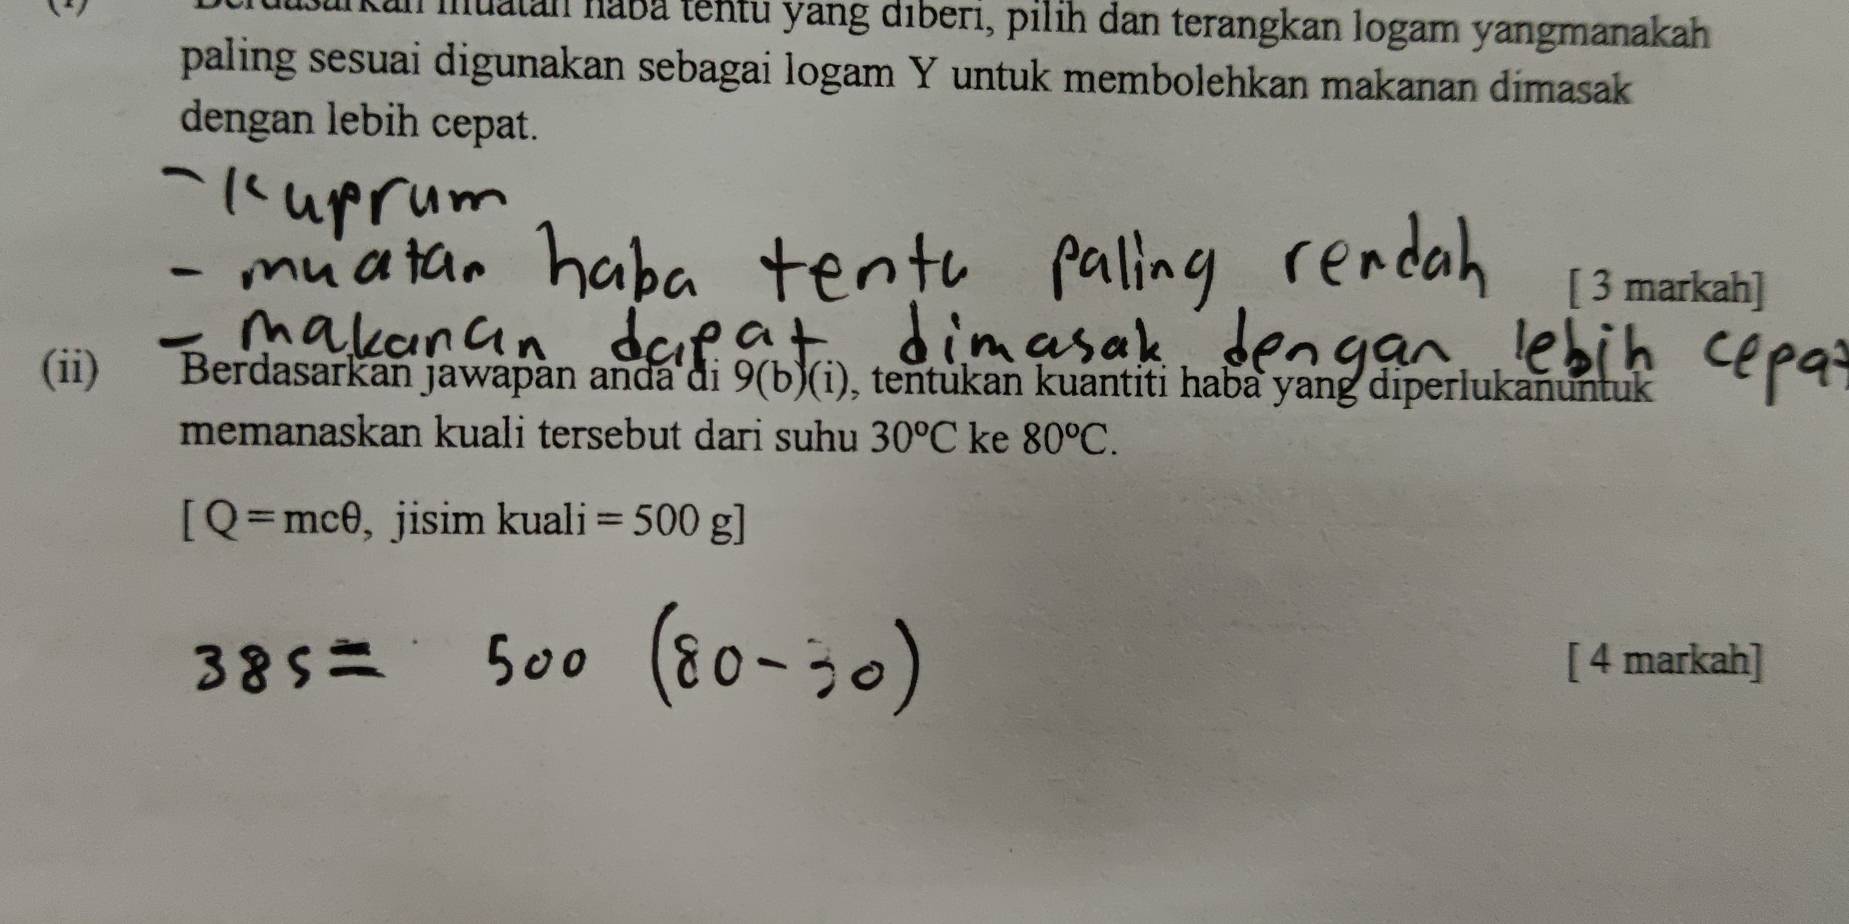 Berdasarkan muatan haba tentu yang diberi, pilih dan terangkan logam yangmanakah
paling sesuai digunakan sebagai logam Y untuk membolehkan makanan dimasak
dengan lebih cepat.
- Kuprum
- muatan haba tentu paling rendah
[ 3 markah]
- makanan dapat dimasak dengan lebih cepat
(ii) Berdasarkan jawapan anda di 9(b)(i), tentukan kuantiti haba yang diperlukanuntuk
memanaskan kuali tersebut dari suhu 30°C ke 80°C.
[ Q = mcθ, jisim kuali = 500 g]
385 = 500 (80 - 30)
[ 4 markah]